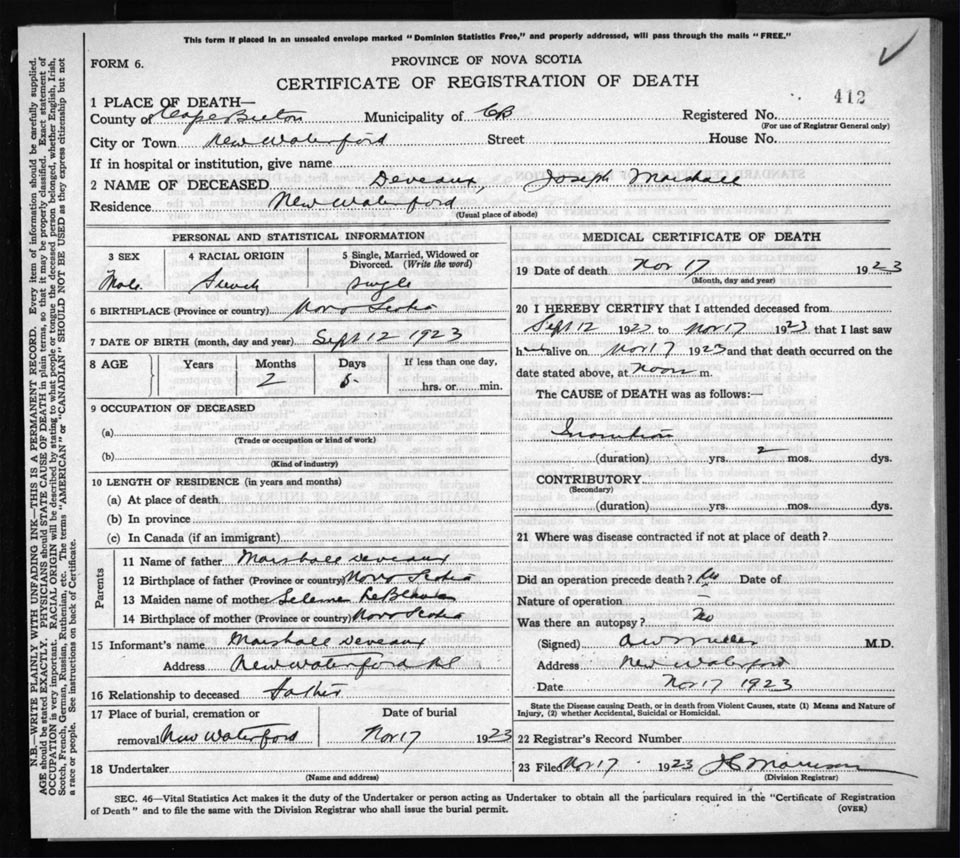 This form if placed in an unsealed envelope marked "Dominion Statistics Free," and properly addressed, will pass through the mails "FREE."
FORM 6.
PROVINCE OF NOVA SCOTIA
CERTIFICATE OF REGISTRATION OF DEATH
412
1 PLACE OF DEATH—
County of Cape Breton Municipality of CB Registered No.
(For use of Registrar General only)
City or Town New Waterford Street House No.
If in hospital or institution, give name
2 NAME OF DECEASED Deveaux, Joseph Marshall
Residence New Waterford
(Usual place of abode)
PERSONAL AND STATISTICAL INFORMATION
3 SEX 4 RACIAL ORIGIN 5 Single, Married, Widowed or Divorced. (Write the word)
Male French single
6 BIRTHPLACE (Province or country) Nova Scotia
7 DATE OF BIRTH (month, day and year) Sept 12 1923
8 AGE Years Months Days If less than one day,
2 5 hrs. or min.
9 OCCUPATION OF DECEASED
(a)
(Trade or occupation or kind of work)
(b)
(Kind of industry)
10 LENGTH OF RESIDENCE (in years and months)
(a) At place of death
(b) In province
(c) In Canada (if an immigrant)
Parents
11 Name of father Marshall Deveaux
12 Birthplace of father (Province or country) Nova Scotia
13 Maiden name of mother LeBlanc
14 Birthplace of mother (Province or country) Nova Scotia
15 Informant's name Marshall Deveaux
Address New Waterford
16 Relationship to deceased father
17 Place of burial, cremation or Date of burial
removal New Waterford Nov 17 1923
18 Undertaker
(Name and address)
MEDICAL CERTIFICATE OF DEATH
19 Date of death Nov 17 1923
(Month, day and year)
20 I HEREBY CERTIFY that I attended deceased from
Sept 12 1923 to Nov 17 1923 that I last saw
h alive on Nov 17 1923 and that death occurred on the
date stated above, at noon m.
The CAUSE of DEATH was as follows:—
Inanition
(duration) yrs. 2 mos. dys.
CONTRIBUTORY
(Secondary)
(duration) yrs. mos. dys.
21 Where was disease contracted if not at place of death?
Did an operation precede death? No Date of
Nature of operation
Was there an autopsy? No
(Signed) M.D.
Address New Waterford
Date Nov 17 1923
State the Disease causing Death, or in death from Violent Causes, state (1) Means and Nature of
Injury, (2) whether Accidental, Suicidal or Homicidal.
22 Registrar's Record Number
23 Filed Nov 17 1923 Morrison
(Division Registrar)
SEC. 46—Vital Statistics Act makes it the duty of the Undertaker or person acting as Undertaker to obtain all the particulars required in the "Certificate of Registration
of Death" and to file the same with the Division Registrar who shall issue the burial permit.
(OVER)
N.B.—WRITE PLAINLY WITH UNFADING INK—THIS IS A PERMANENT RECORD. Every item of information should be carefully supplied.
AGE should be stated EXACTLY. PHYSICIANS should STATE CAUSE OF DEATH in plain terms, so that it may be properly classified. Exact statement of
OCCUPATION is very important. RACIAL ORIGIN will be described by stating to what people or tongue the deceased person belonged, whether English, Irish,
Scotch, French, German, Russian, Ruthenian, etc. The terms "AMERICAN" or "CANADIAN" SHOULD NOT BE USED as they express citizenship but not
a race or people. See instructions on back of Certificate.